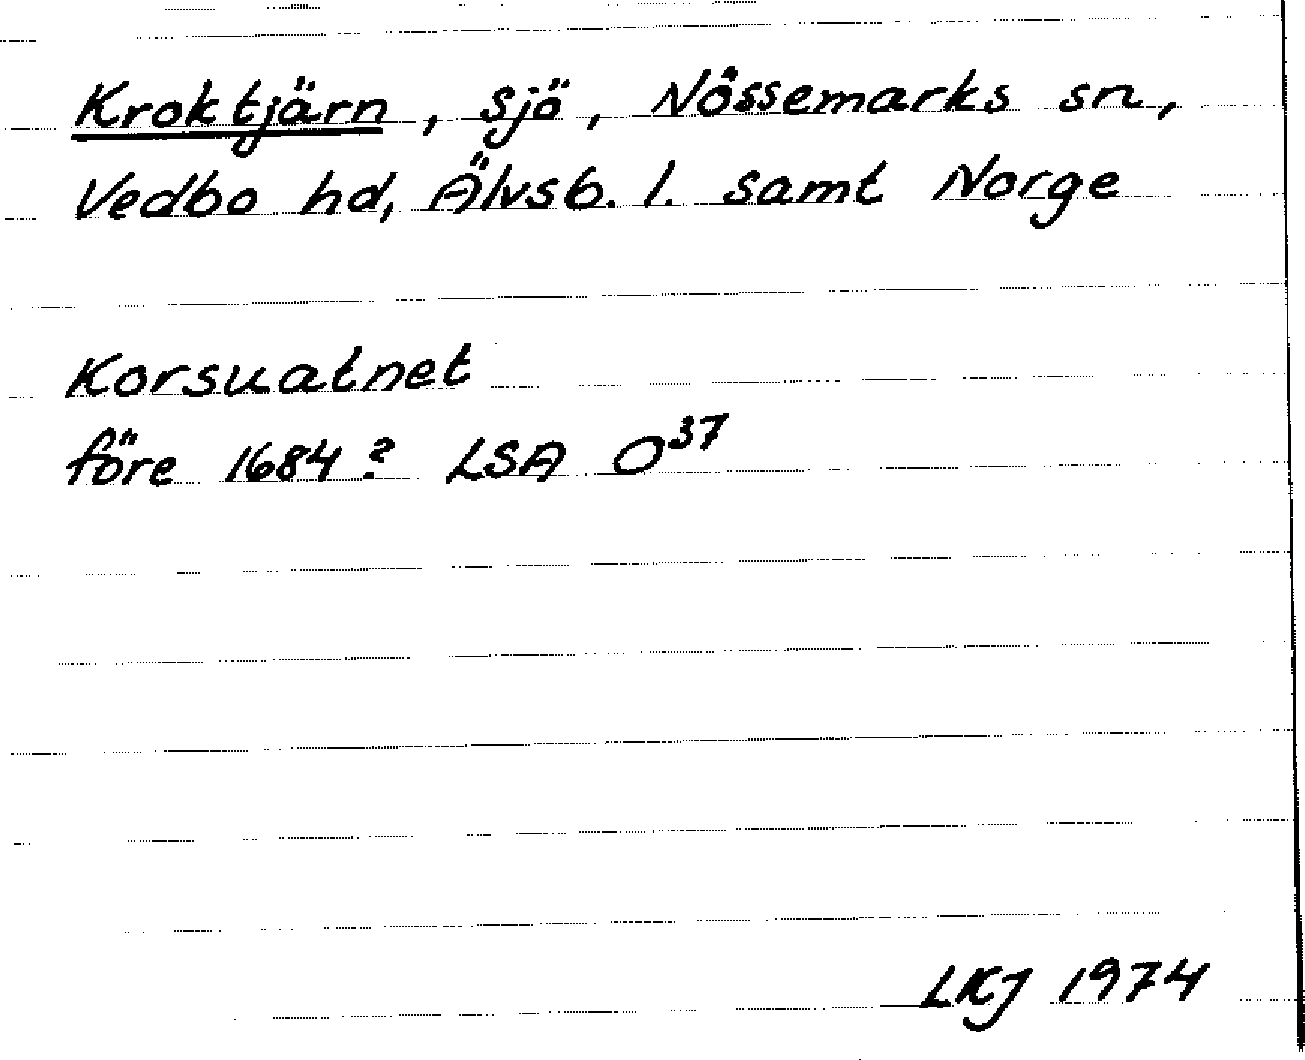 Kroktjärn, sjö, Nössemarks sn,
Vedbo hd, Älvsb. l. samt Norge
Korsuatnet
före 1684? LSA O³⁷
LKJ 1974